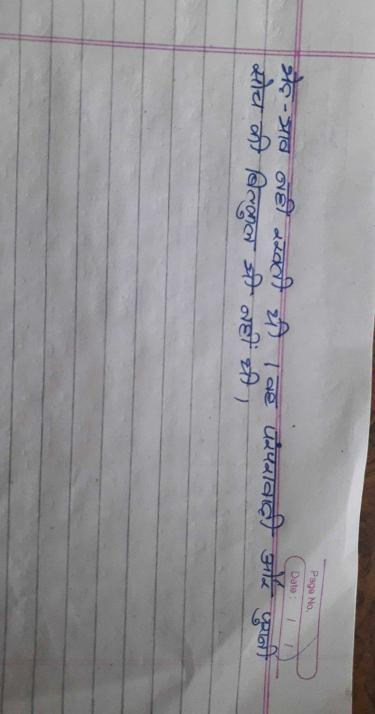 Page No.
Date: / /
भेद-भाव नहीं रखती थी। वह परंपरावादी और पुरानी
सोच की बिलकुल भी नहीं थी,